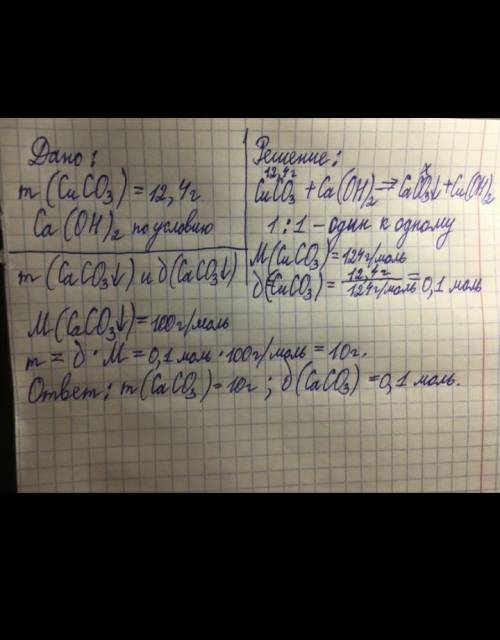 Дано:
m(CuCO₃) = 12,4г
Ca(OH)₂ по условию
m(CaCO₃↓) и д(CaCO₃↓)
Решение:
12,4г x
CuCO₃ + Ca(OH)₂ ⇒ CaCO₃↓ + Cu(OH)₂
1 : 1 – один к одному
M(CuCO₃) = 124г/моль
д(CuCO₃) = 12,4г / 124г/моль = 0,1 моль
M(CaCO₃↓) = 100г/моль
m = д · M = 0,1 моль · 100г/моль = 10г.
Ответ: m(CaCO₃) = 10г ; д(CaCO₃) = 0,1 моль.